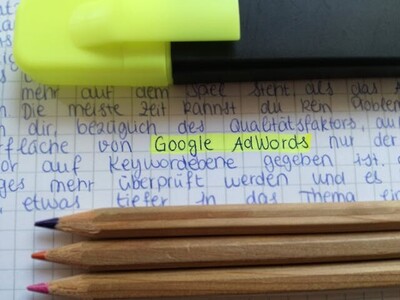 mehr auf dem Spiel steht als das
Die meiste Zeit kannst du kein Problem
dir, bezüglich des Qualitätsfaktors, auf
fläche von Google AdWords nur der
auf Keywordebene gegeben ist.
mehr überprüft werden und es
etwas tiefer in das Thema